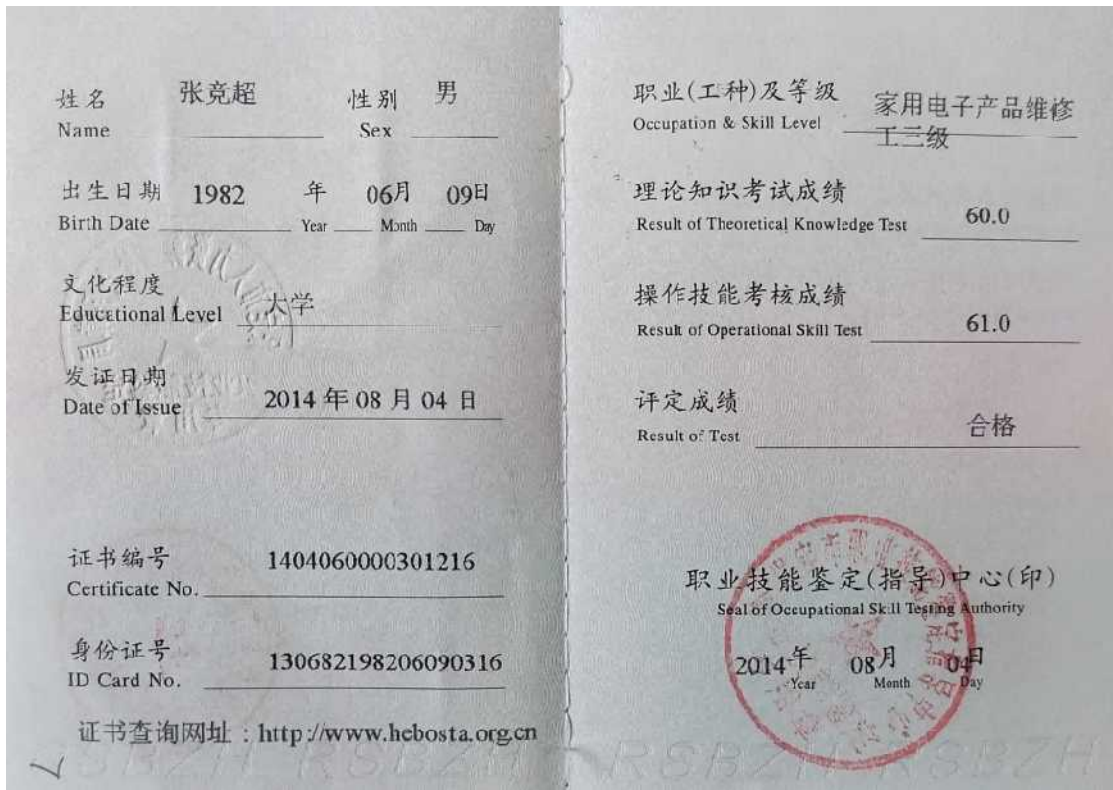 姓名 张竞超 性别 男
Name Sex
出生日期 1982 年 06月 09日
Birth Date Year Month Day
文化程度
Educational Level 大学
发证日期
Date of Issue 2014 年 08 月 04 日
证书编号 1404060000301216
Certificate No.
身份证号 130682198206090316
ID Card No.
证书查询网址：http://www.hebosta.org.cn
职业(工种)及等级 家用电子产品维修
Occupation & Skill Level 工三级
理论知识考试成绩 60.0
Result of Theoretical Knowledge Test
操作技能考核成绩 61.0
Result of Operational Skill Test
评定成绩 合格
Result of Test
职业技能鉴定(指导)中心(印)
Seal of Occupational Skill Testing Authority
2014年 08月 04日
Year Month Day
RSBZH RSBZH RSBZH RSBZH